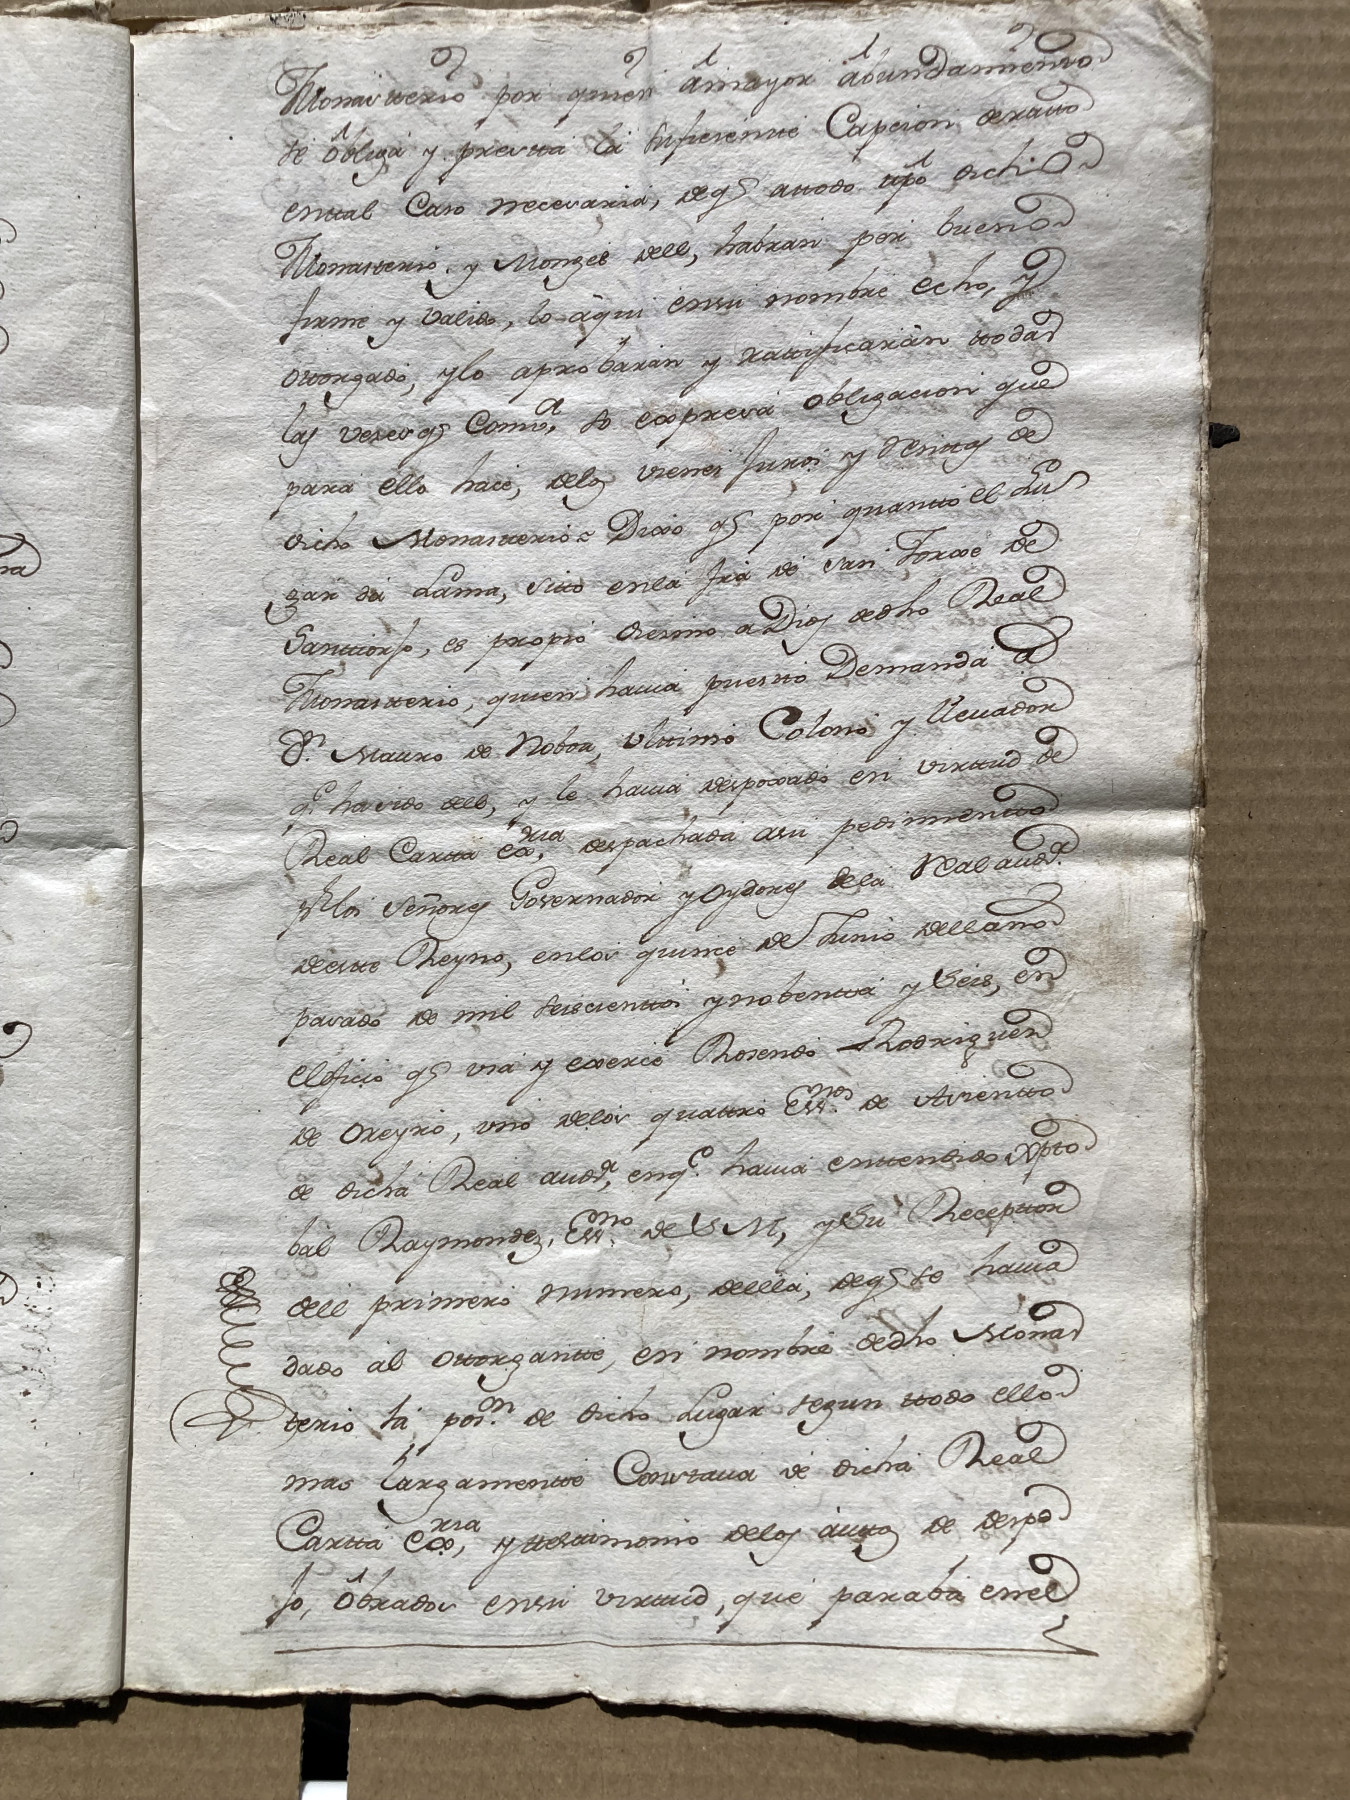 Monastterio por quien â mayor âbundamiento
se ôbliga y prestta la sufiziente Capcion de ratto
en ttal Caso necesaria, de q̃ a ttodo ttpô dicho
Monasterio y Monges dell, habran por bueno
firme y valido, lo aqui en su nombre echo, y
ottorgado, y lo aprobaran y rattificaràn ttodas
las vezes q̃ Comᵃ, so expresa obligacion que
para ello hace, delos vienes Juros y Renttas de
dicho Monastterio = Dixo q̃ por quantto el Lu
gar da Lama, sitto en la fra de San Jorxe de
Santtiorjo, es propio diesmo a Dios de dho Real
Monastterio, quien havia puestto Demanda a
Dⁿ. Mauro de Noboa, Ulttimo Colono y llevador
qᵉ ha sido dell, y le havia desposeado en virttud de
Real Cartta exᵣᵢₐ, despachada a su pedimentto
pʳ los Señores Governador y Oydores de la Real audᵃ.
de estte Reyno, en los quince de Junio dell año
pasado de mil seiscienttos y nobentta y Seis, en
el oficio q̃ usa y exerce Rosendo Rodriguez
de Oreyro, uno de los quattro Essⁿᵒˢ. de Asientto
de dicha Real audᵃ, en qᵉ. havia enttendido Xpto
bal Raymondez, Essⁿᵒ. de S M, y su Recepttor
dell primero numero, della, de q̃ se havia
dado al ottorgantte, en nombre de dho Monas
terio la posⁿ. de dicho Lugar segun ttodo ello
mas largamentte Consttava de dicha Real
Cartta exᵣᵢₐ, y ttesttimonio delos auttos de despo
jo, ôbrados en su virttud, que paraba en el